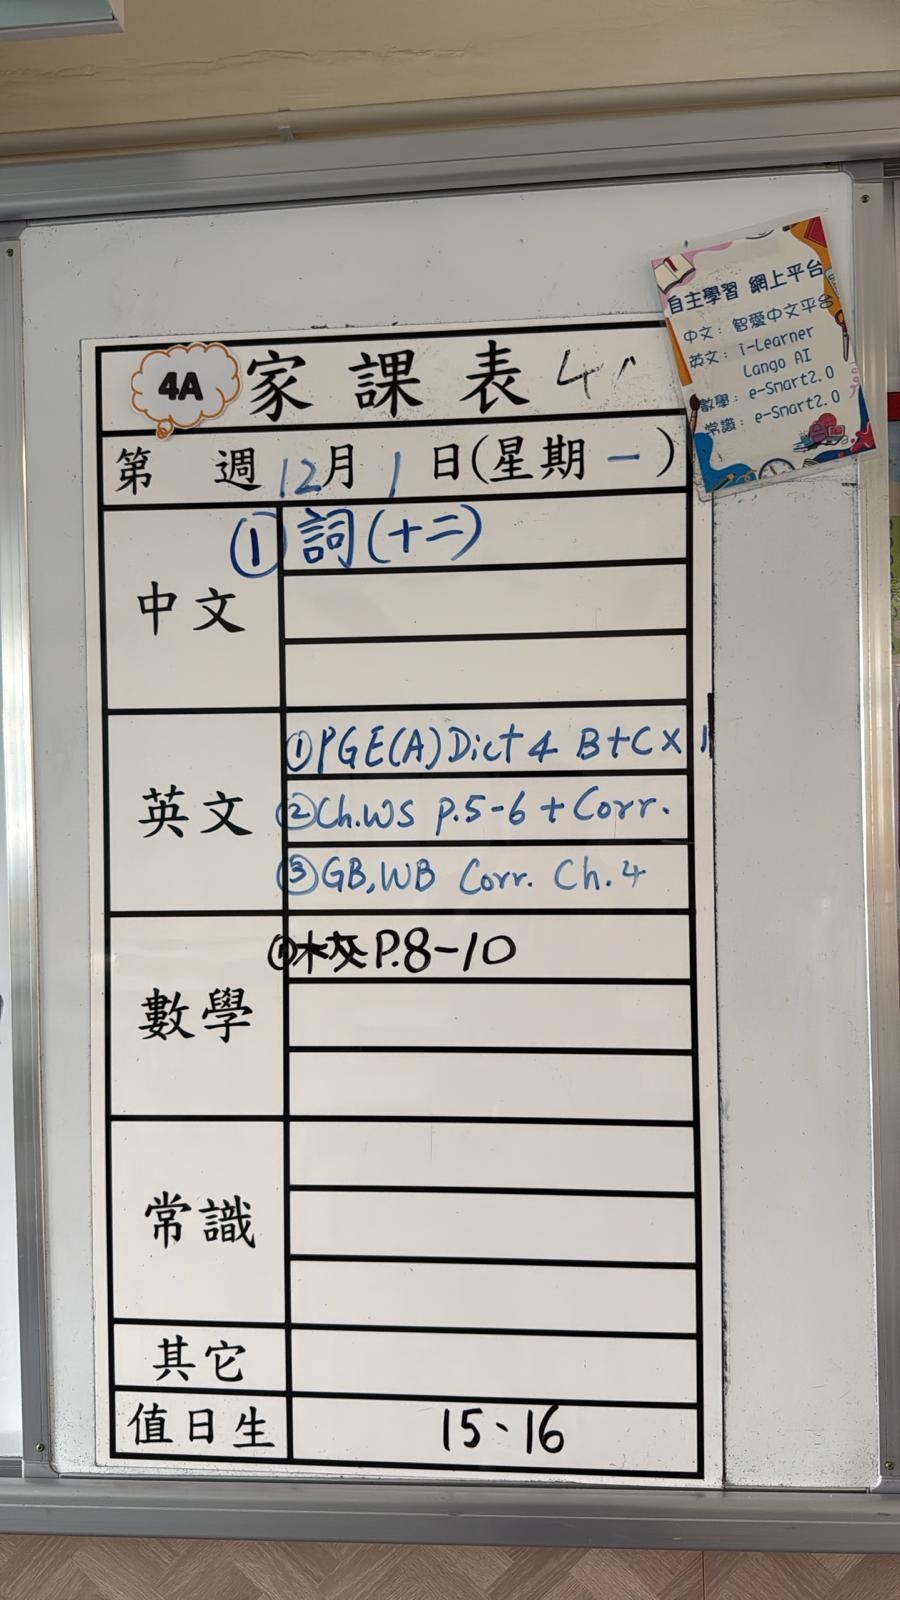 自主學習 網上平台
中文：智愛中文平台
英文：i-Learner
Lango AI
數學：e-Smart2.0
常識：e-Smart2.0
4A 家課表
第 週 12月 1 日(星期一)
中文
① 詞(十二)
英文
① PGE(A) Dict 4 B+C x 1
② Ch.WS P.5-6 + Corr.
③ GB, WB Corr. Ch.4
數學
① P.8-10
常識
其它
值日生
15、16